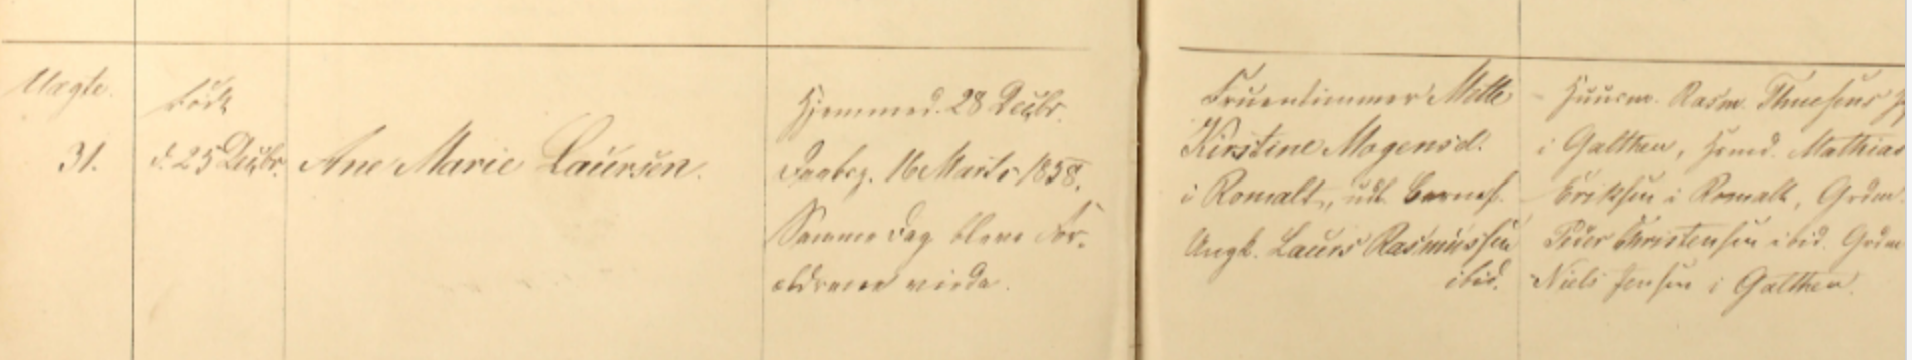 Uægte.
31.
født
d. 25 Decbr.
Ane Marie Laursen.
Hjemmed. 28 Decbr.
Daabez. 16 Marts 1858.
Samme Dag bleve For-
ældrene viede.
Fruentimmer Mette
Kirstine Mogensd.
i Romalt, udl. Barnef.
Ungk. Laurs Rasmussen
ibid.
Huusm. Rasm. Thuesens
i Galthen, Hmd. Mathias
Eriksen i Romalt, Grdm.
Peder Christensen ibid. Grdm
Niels Jensen i Galthen.